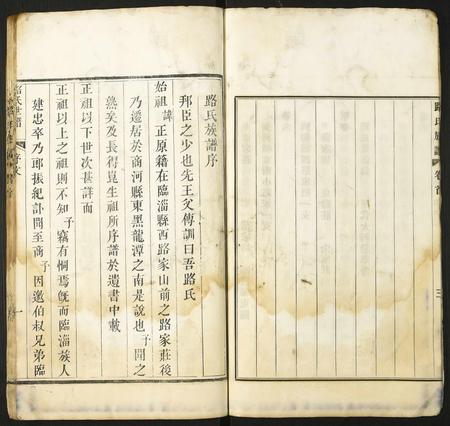 路氏族譜 卷首
三
路氏族譜序
邦臣之少也先王父傳訓曰吾路氏
始祖諱正原籍在臨淄縣西路家山前之路家莊後
乃遷居於商河縣東黑龍潭之南是說也予聞之
熟矣及長得崑生祖所序譜於遺書中載
正祖以下世次甚詳而
正祖以上之祖則不知予竊有恫焉旣而臨淄族人
建忠卒乃郎振紀訃聞至商予因邀伯叔兄弟臨
路氏世譜
序次
一